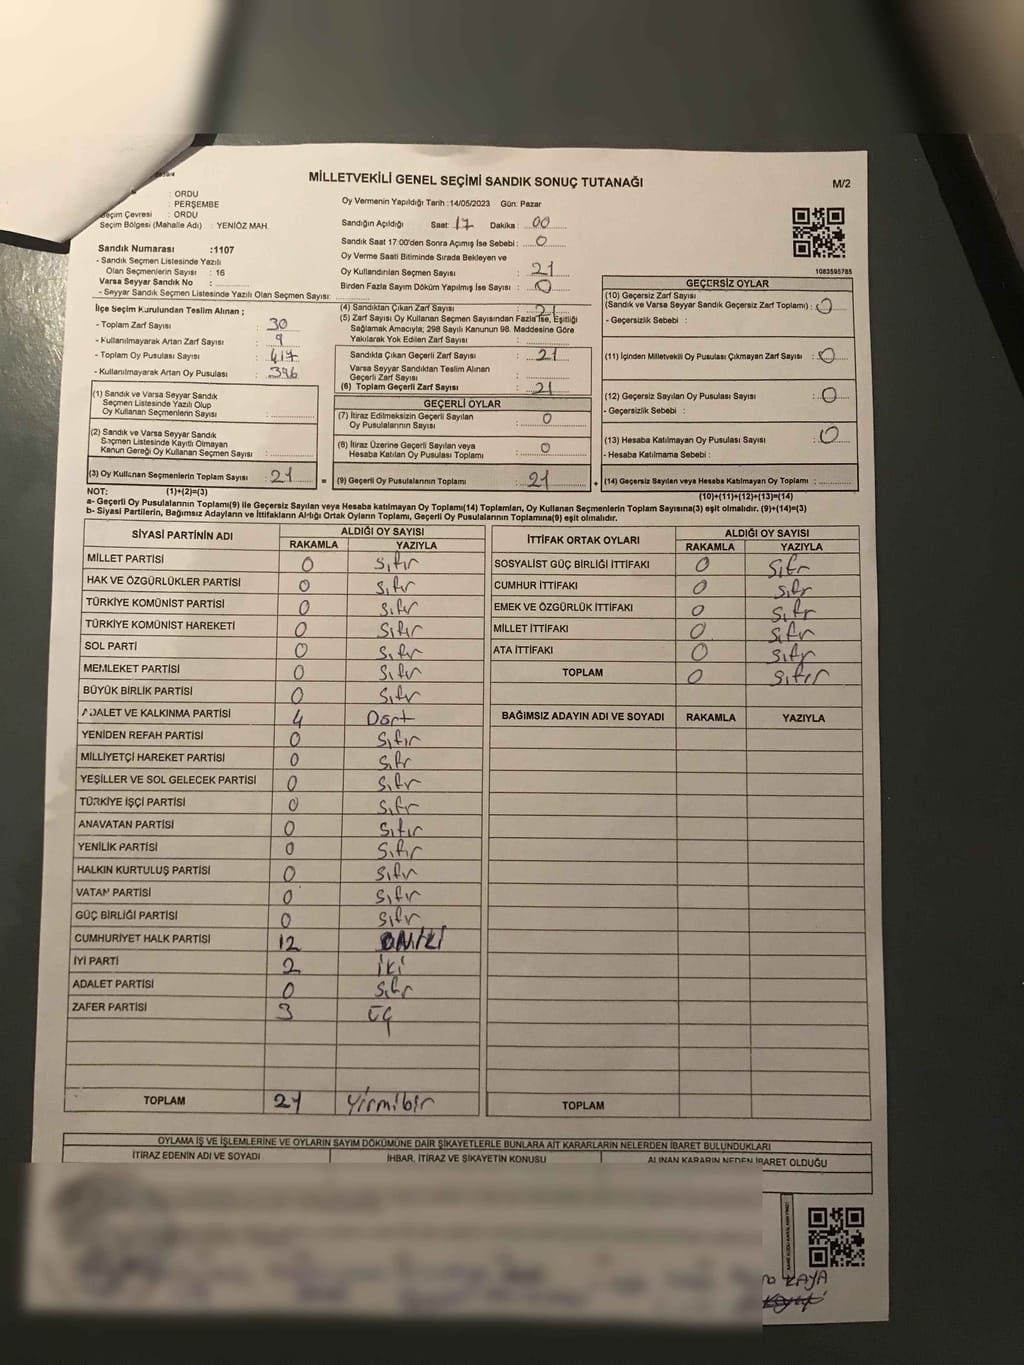 MİLLETVEKİLİ GENEL SEÇİMİ SANDIK SONUÇ TUTANAĞI
M/2
: ORDU
: PERŞEMBE
Seçim Çevresi : ORDU
Seçim Bölgesi (Mahalle Adı) : YENİÖZ MAH.
Oy Vermenin Yapıldığı Tarih :14/05/2023 Gün: Pazar
Sandığın Açıldığı Saat: 17 Dakika : 00
Sandık Saat 17:00'den Sonra Açımış İse Sebebi : 0
Oy Verme Saati Bitiminde Sırada Bekleyen ve
Oy Kullandırılan Seçmen Sayısı : 21
Birden Fazla Sayım Döküm Yapılmış İse Sayısı : 0
Sandık Numarası :1107
- Sandık Seçmen Listesinde Yazılı
Olan Seçmenlerin Sayısı : 16
Varsa Seyyar Sandık No :
- Seyyar Sandık Seçmen Listesinde Yazılı Olan Seçmen Sayısı:
1083595785
İlçe Seçim Kurulundan Teslim Alınan ;
- Toplam Zarf Sayısı : 30
- Kullanılmayarak Artan Zarf Sayısı : 9
- Toplam Oy Pusulası Sayısı : 417
- Kullanılmayarak Artan Oy Pusulası : 396
(1) Sandık ve Varsa Seyyar Sandık
Seçmen Listesinde Yazılı Olup
Oy Kullanan Seçmenlerin Sayısı :
(2) Sandık ve Varsa Seyyar Sandık
Seçmen Listesinde Kayıtlı Olmayan
Kanun Gereği Oy Kullanan Seçmen Sayısı :
(3) Oy Kullanan Seçmenlerin Toplam Sayısı : 21
(4) Sandıktan Çıkan Zarf Sayısı : 21
(5) Zarf Sayısı Oy Kullanan Seçmen Sayısından Fazla İse, Eşitliği
Sağlamak Amacıyla; 298 Sayılı Kanunun 98. Maddesine Göre
Yakılarak Yok Edilen Zarf Sayısı :
Sandıkta Çıkan Geçerli Zarf Sayısı : 21
Varsa Seyyar Sandıktan Teslim Alınan
Geçerli Zarf Sayısı :
(6) Toplam Geçerli Zarf Sayısı : 21
GEÇERLİ OYLAR
(7) İtiraz Edilmeksizin Geçerli Sayılan
Oy Pusulalarının Sayısı : 0
(8) İtiraz Üzerine Geçerli Sayılan veya
Hesaba Katılan Oy Pusulası Toplamı : 0
= (9) Geçerli Oy Pusulalarının Toplamı : 21
GEÇERSİZ OYLAR
(10) Geçersiz Zarf Sayısı
(Sandık ve Varsa Seyyar Sandık Geçersiz Zarf Toplamı) : 0
- Geçersizlik Sebebi :
(11) İçinden Milletvekili Oy Pusulası Çıkmayan Zarf Sayısı : 0
(12) Geçersiz Sayılan Oy Pusulası Sayısı : 0
- Geçersizlik Sebebi :
(13) Hesaba Katılmayan Oy Pusulası Sayısı : 0
- Hesaba Katılmama Sebebi :
+ (14) Geçersiz Sayılan veya Hesaba Katılmayan Oy Toplamı :
NOT: (1)+(2)=(3)
(10)+(11)+(12)+(13)=(14)
a- Geçerli Oy Pusulalarının Toplamı(9) ile Geçersiz Sayılan veya Hesaba katılmayan Oy Toplamı(14) Toplamları, Oy Kullanan Seçmenlerin Toplam Sayısına(3) eşit olmalıdır. (9)+(14)=(3)
b- Siyasi Partilerin, Bağımsız Adayların ve İttifakların Aldığı Ortak Oyların Toplamı, Geçerli Oy Pusulalarının Toplamına(9) eşit olmalıdır.
SİYASİ PARTİNİN ADI ALDIĞI OY SAYISI
RAKAMLA YAZIYLA
MİLLET PARTİSİ 0 Sıfır
HAK VE ÖZGÜRLÜKLER PARTİSİ 0 Sıfır
TÜRKİYE KOMÜNİST PARTİSİ 0 Sıfır
TÜRKİYE KOMÜNİST HAREKETİ 0 Sıfır
SOL PARTİ 0 Sıfır
MEMLEKET PARTİSİ 0 Sıfır
BÜYÜK BİRLİK PARTİSİ 0 Sıfır
ADALET VE KALKINMA PARTİSİ 4 Dört
YENİDEN REFAH PARTİSİ 0 Sıfır
MİLLİYETÇİ HAREKET PARTİSİ 0 Sıfır
YEŞİLLER VE SOL GELECEK PARTİSİ 0 Sıfır
TÜRKİYE İŞÇİ PARTİSİ 0 Sıfır
ANAVATAN PARTİSİ 0 Sıfır
YENİLİK PARTİSİ 0 Sıfır
HALKIN KURTULUŞ PARTİSİ 0 Sıfır
VATAN PARTİSİ 0 Sıfır
GÜÇ BİRLİĞİ PARTİSİ 0 Sıfır
CUMHURİYET HALK PARTİSİ 12 ONİKİ
İYİ PARTİ 2 İKİ
ADALET PARTİSİ 0 Sıfır
ZAFER PARTİSİ 3 ÜÇ
TOPLAM 21 Yirmibir
İTTİFAK ORTAK OYLARI ALDIĞI OY SAYISI
RAKAMLA YAZIYLA
SOSYALİST GÜÇ BİRLİĞİ İTTİFAKI 0 Sıfır
CUMHUR İTTİFAKI 0 Sıfır
EMEK VE ÖZGÜRLÜK İTTİFAKI 0 Sıfır
MİLLET İTTİFAKI 0 Sıfır
ATA İTTİFAKI 0 Sıfır
TOPLAM 0 Sıfır
BAĞIMSIZ ADAYIN ADI VE SOYADI RAKAMLA YAZIYLA
TOPLAM
OYLAMA İŞ VE İŞLEMLERİNE VE OYLARIN SAYIM DÖKÜMÜNE DAİR ŞİKAYETLERLE BUNLARA AİT KARARLARIN NELERDEN İBARET BULUNDUKLARI
İTİRAZ EDENİN ADI VE SOYADI İHBAR, İTİRAZ VE ŞİKAYETİN KONUSU ALINAN KARARIN NEDEN İBARET OLDUĞU
KAYA